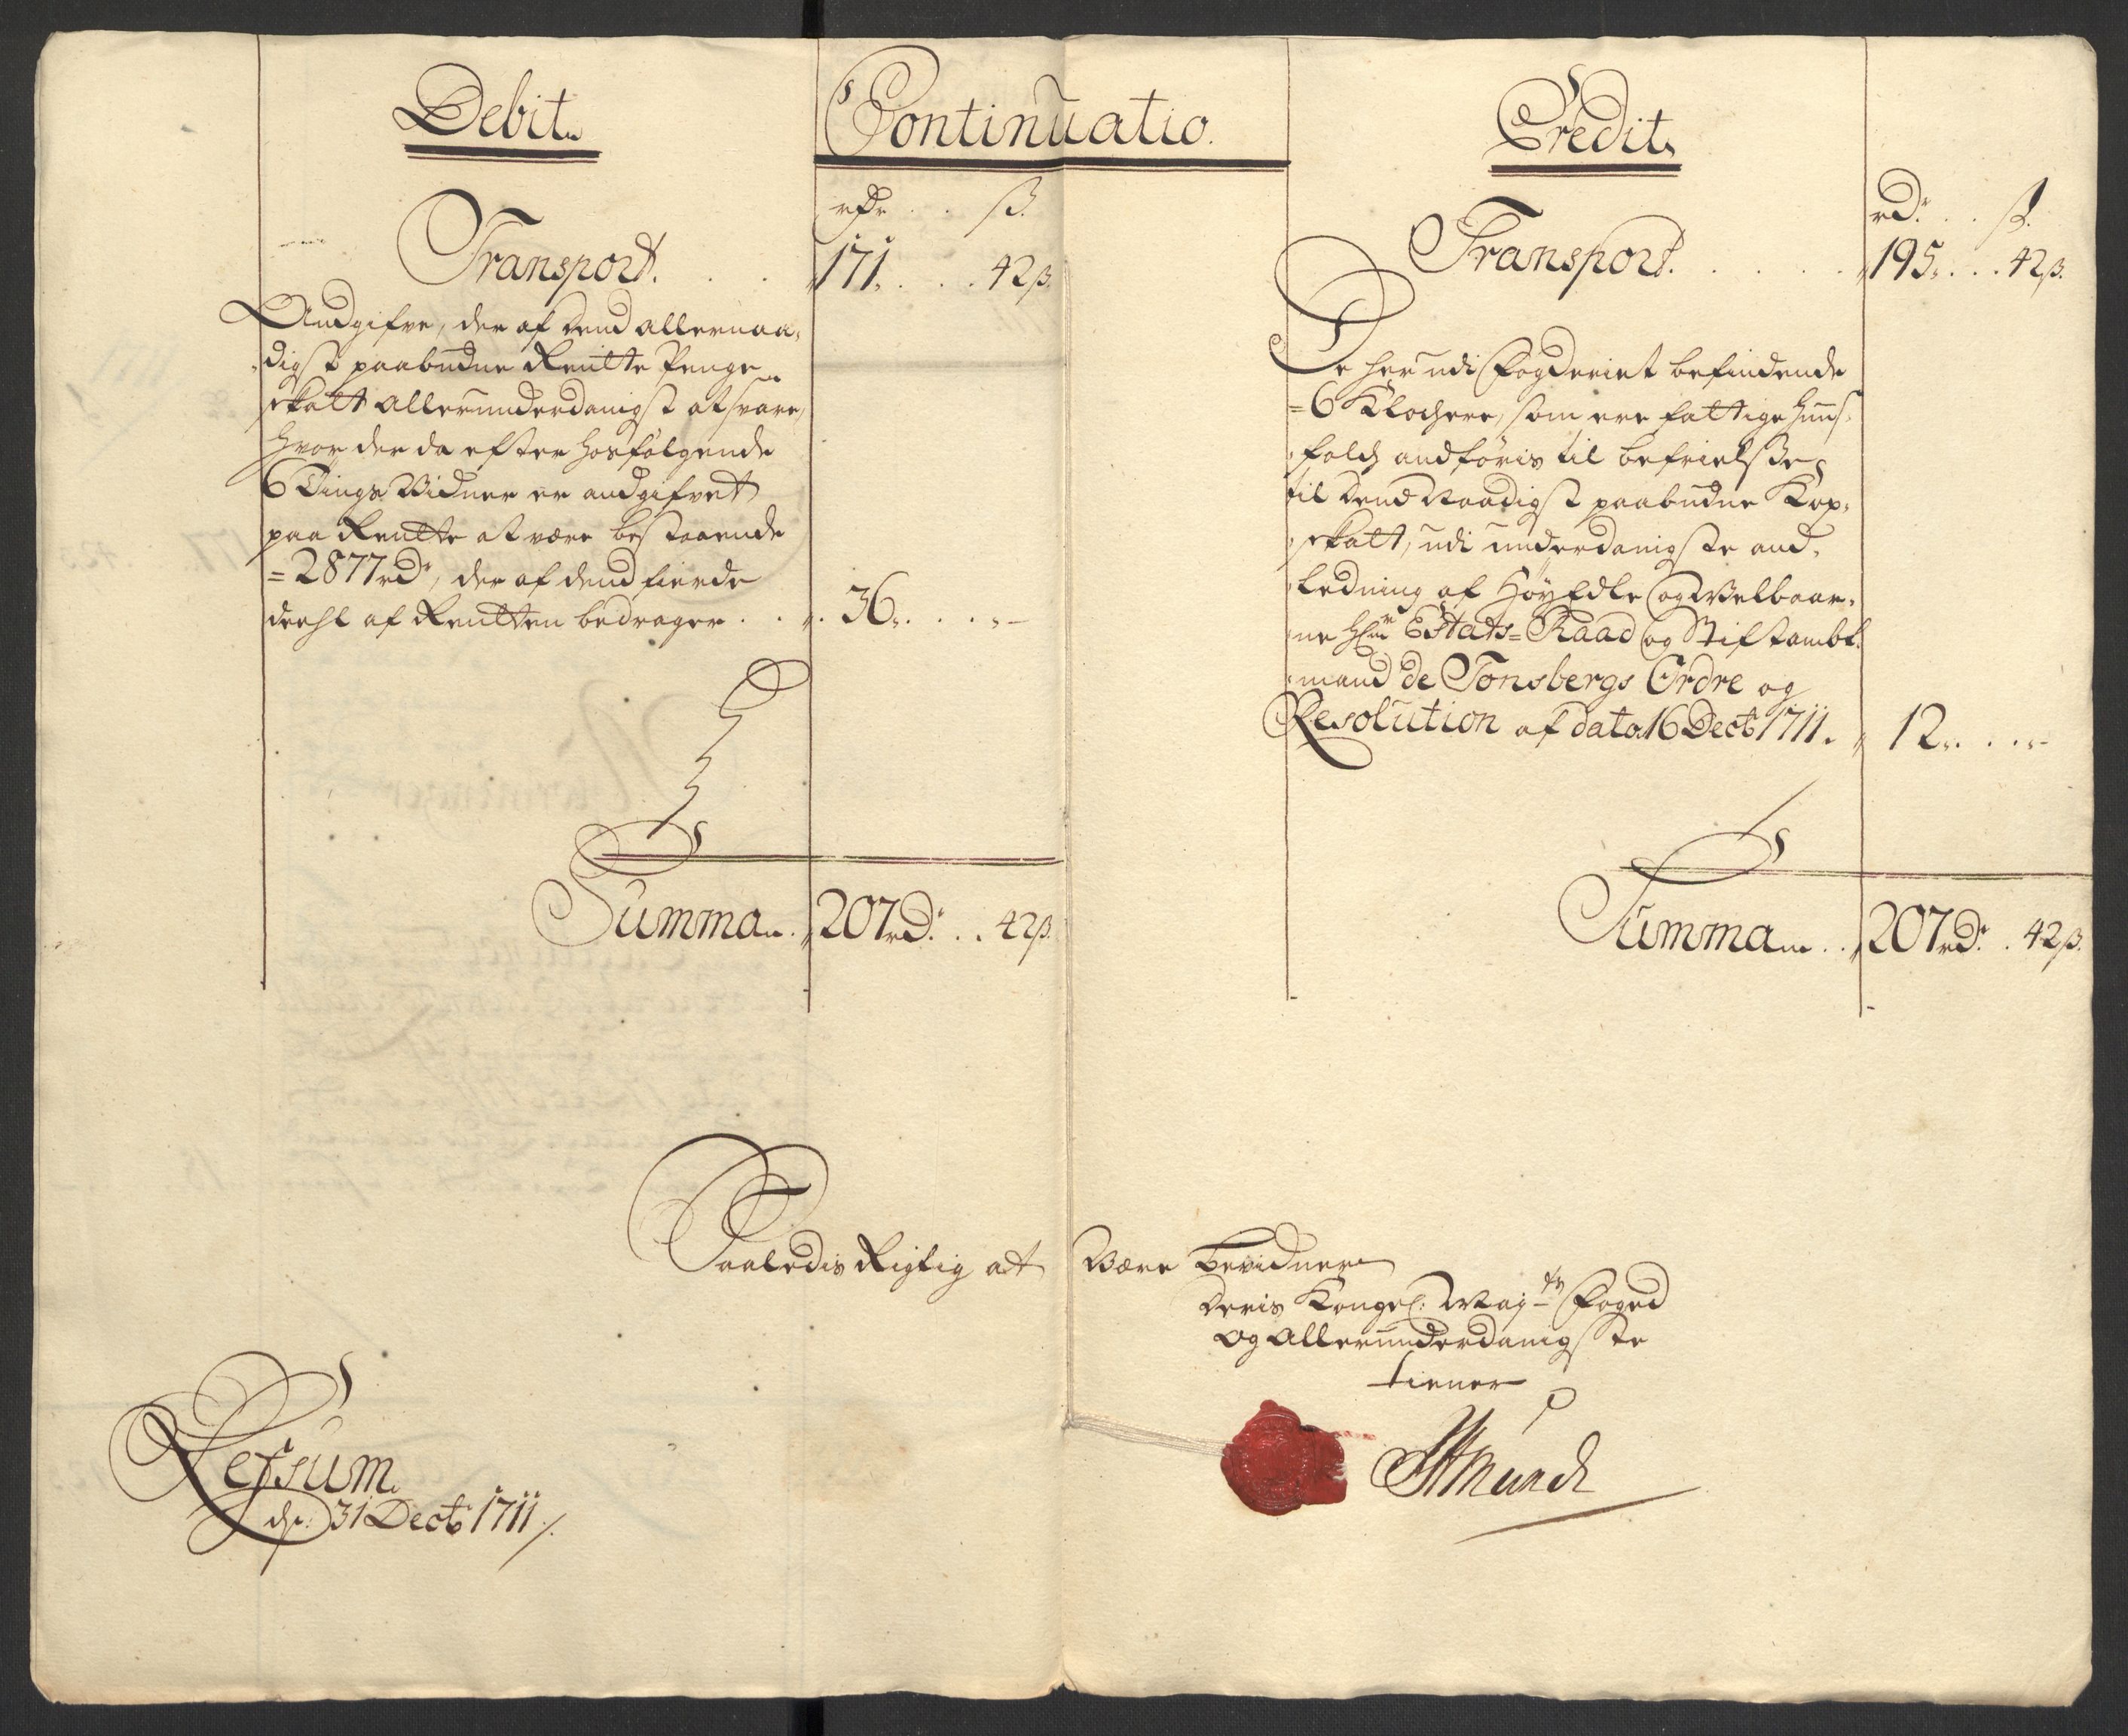 Debit.
Continuatio.
Credit.
rdr . . ß.
Transport. . . 171. . . . 42 ß.
Andgifve, der af dend allernaa-
digst paabudne Rentte Penge
skatt allerunderdanigst at svare,
hvor der da efter hosfølgende
6 Tings Vidner er andgifvet
paa Rentte at være bestaaende
= 2877 rdr, der af dend fierde
deehl af Rentten bedrager . . . 36. . . . -
Summa . 207 rdr . . 42 ß.
rdr . . ß.
Transport. . . . . 195. . . 42 ß.
De her udi Fogderiet befindende
= 6 Klochere, som ere fattige huus-
folch andføris til befrielsße
til dend Naadigst paabudne Kop-
skatt, udi underdanigste and-
ledning af Høyædle og Velbaar-
ne Hr Estats-Raad og Stiftambt-
mand de Tonsbergs Ordre og
Resolution af dato 16 Decb 1711. 12. . . . -
Summa . . 207 rdr . 42 ß.
Saaledis Rigtig att Være bevidner
Deris Kongel: Majts Foged
og allerunderdanigste
tiener
SMunch
Refsum
d: 31 Decb 1711 ./.